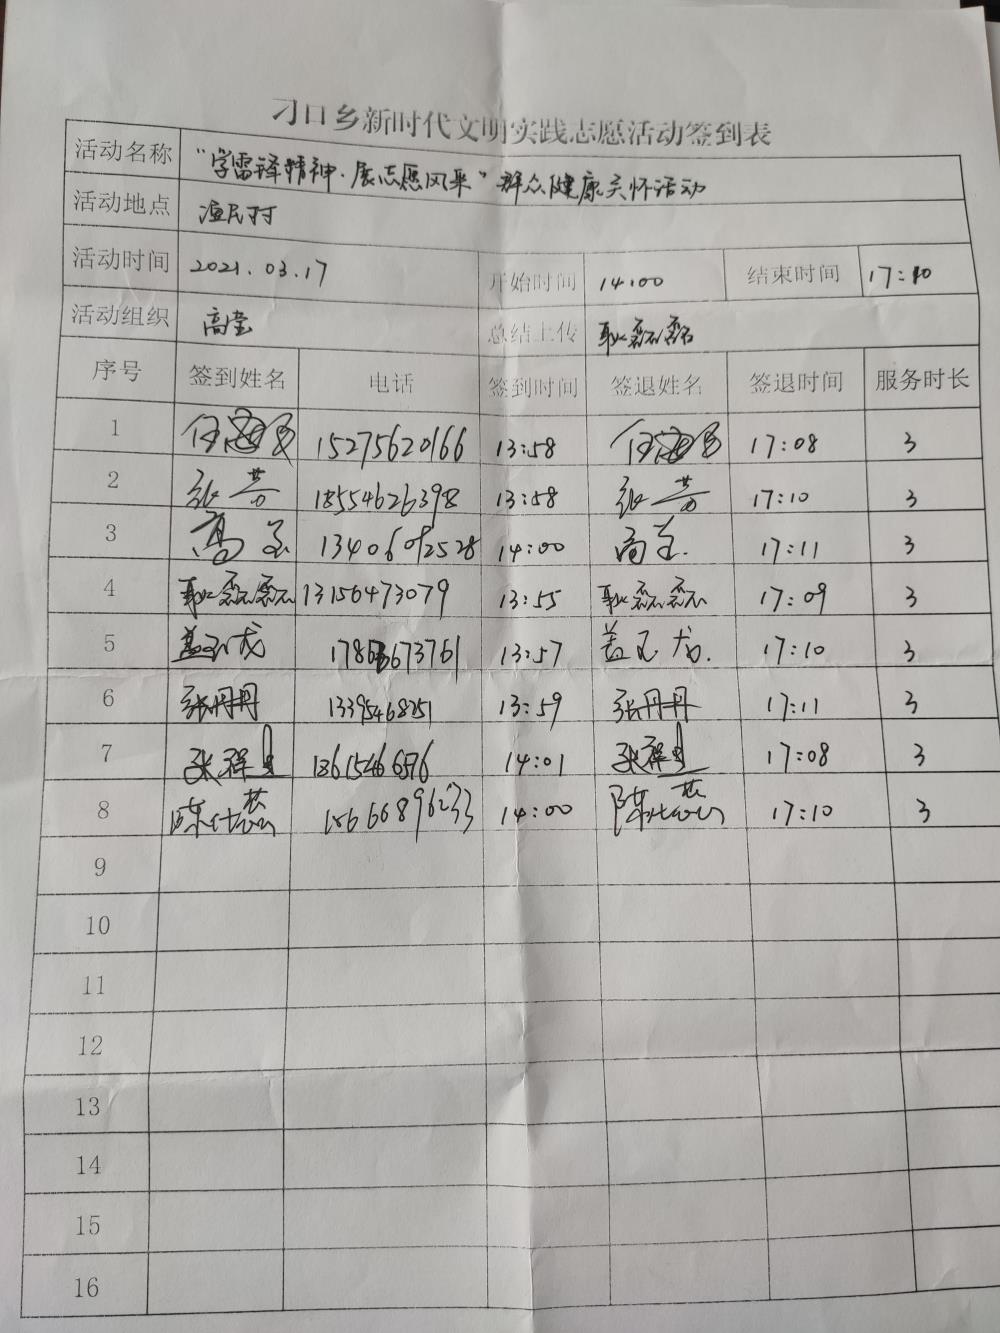 刁口乡新时代文明实践志愿活动签到表
活动名称 “学雷锋精神·展志愿风采”群众健康关怀活动
活动地点 渔民村
活动时间 2021.03.17 开始时间 14:00 结束时间 17:10
活动组织 高莹 总结上传 耿磊磊
序号 签到姓名 电话 签到时间 签退姓名 签退时间 服务时长
1 15275620166 13:58 17:08 3
2 张芳 18554626398 13:58 张芳 17:10 3
3 高莹 13406092528 14:00 高莹 17:11 3
4 耿磊磊 13156473079 13:55 耿磊磊 17:09 3
5 盖玉龙 17863673761 13:57 盖玉龙 17:10 3
6 张丹丹 13395468251 13:59 张丹丹 17:11 3
7 14:01 17:08 3
8 15666896233 14:00 17:10 3
9
10
11
12
13
14
15
16